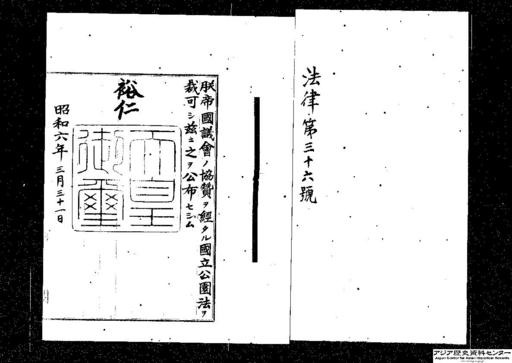 法律第三十六號
朕帝國議會ノ協贊ヲ經タル國立公園法ヲ
裁可シ茲ニ之ヲ公布セシム
裕仁
天皇御璽
昭和六年三月三十一日
アジア歴史資料センター
Japan Center for Asian Historical Records